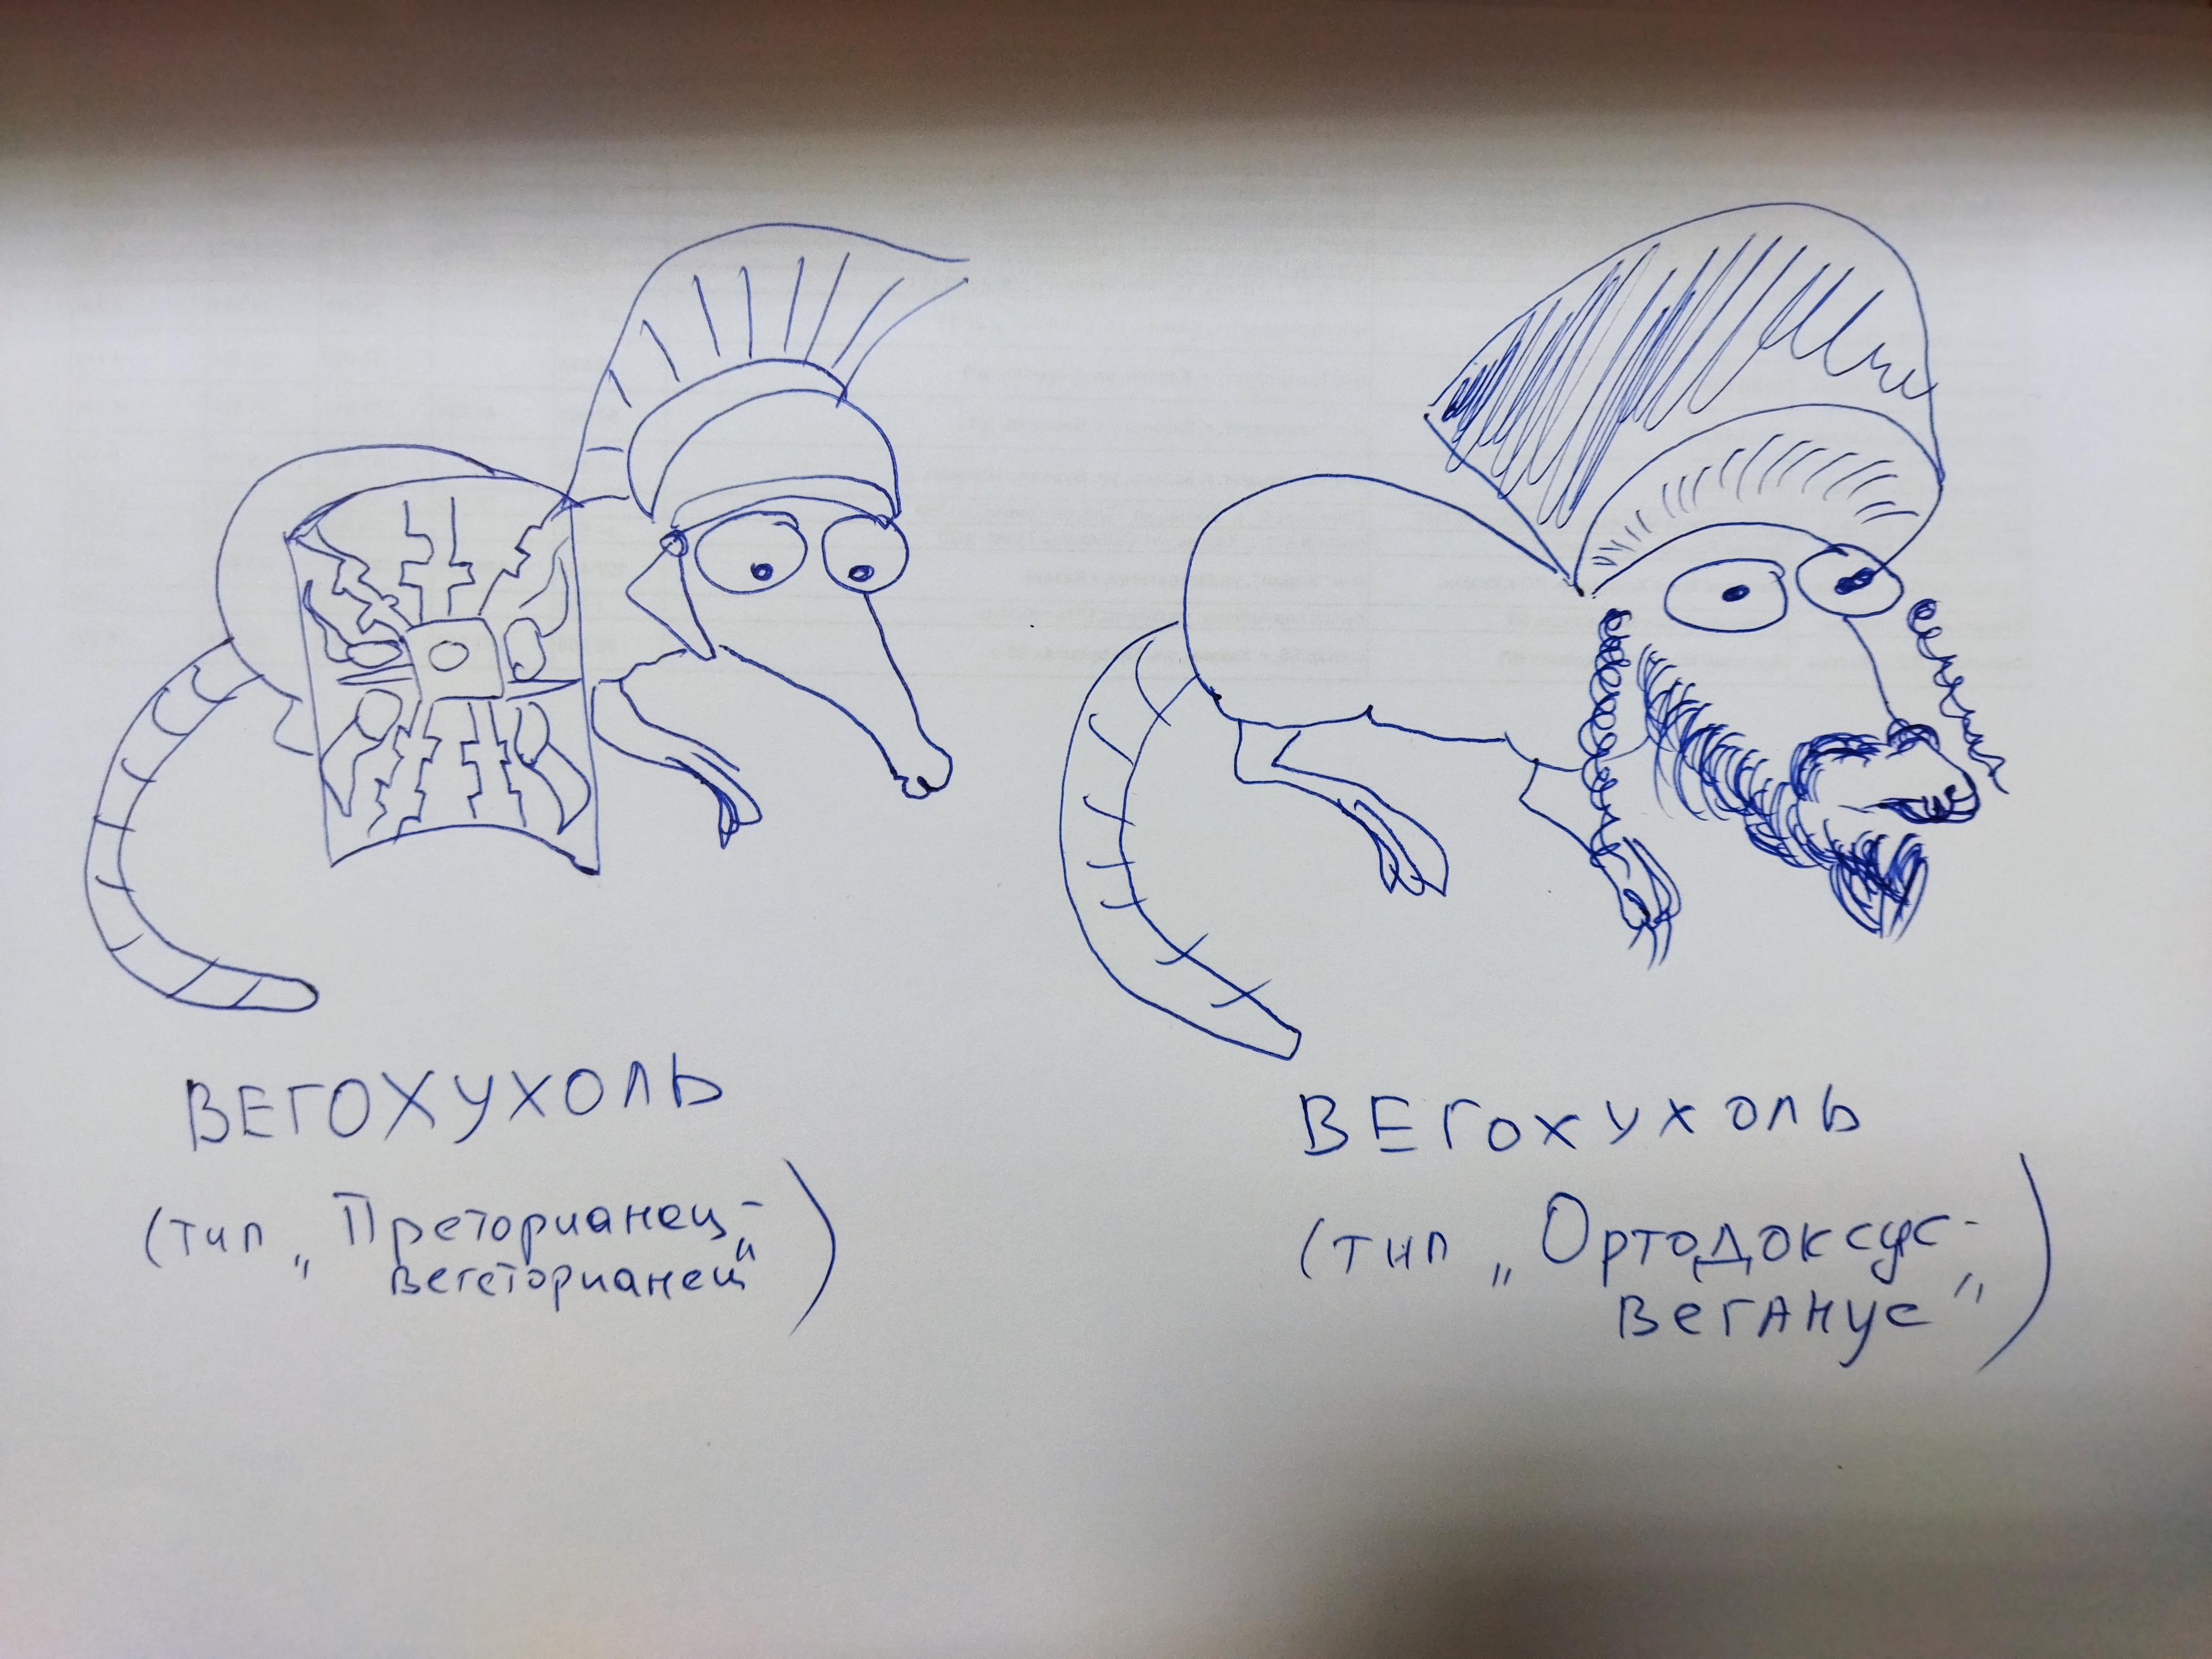 ВЕГОХУХОЛЬ
(тип „Преторианец-
вегеторианец“)
ВЕГОХУХОЛЬ
(тип „Ортодоксус-
веганус“)